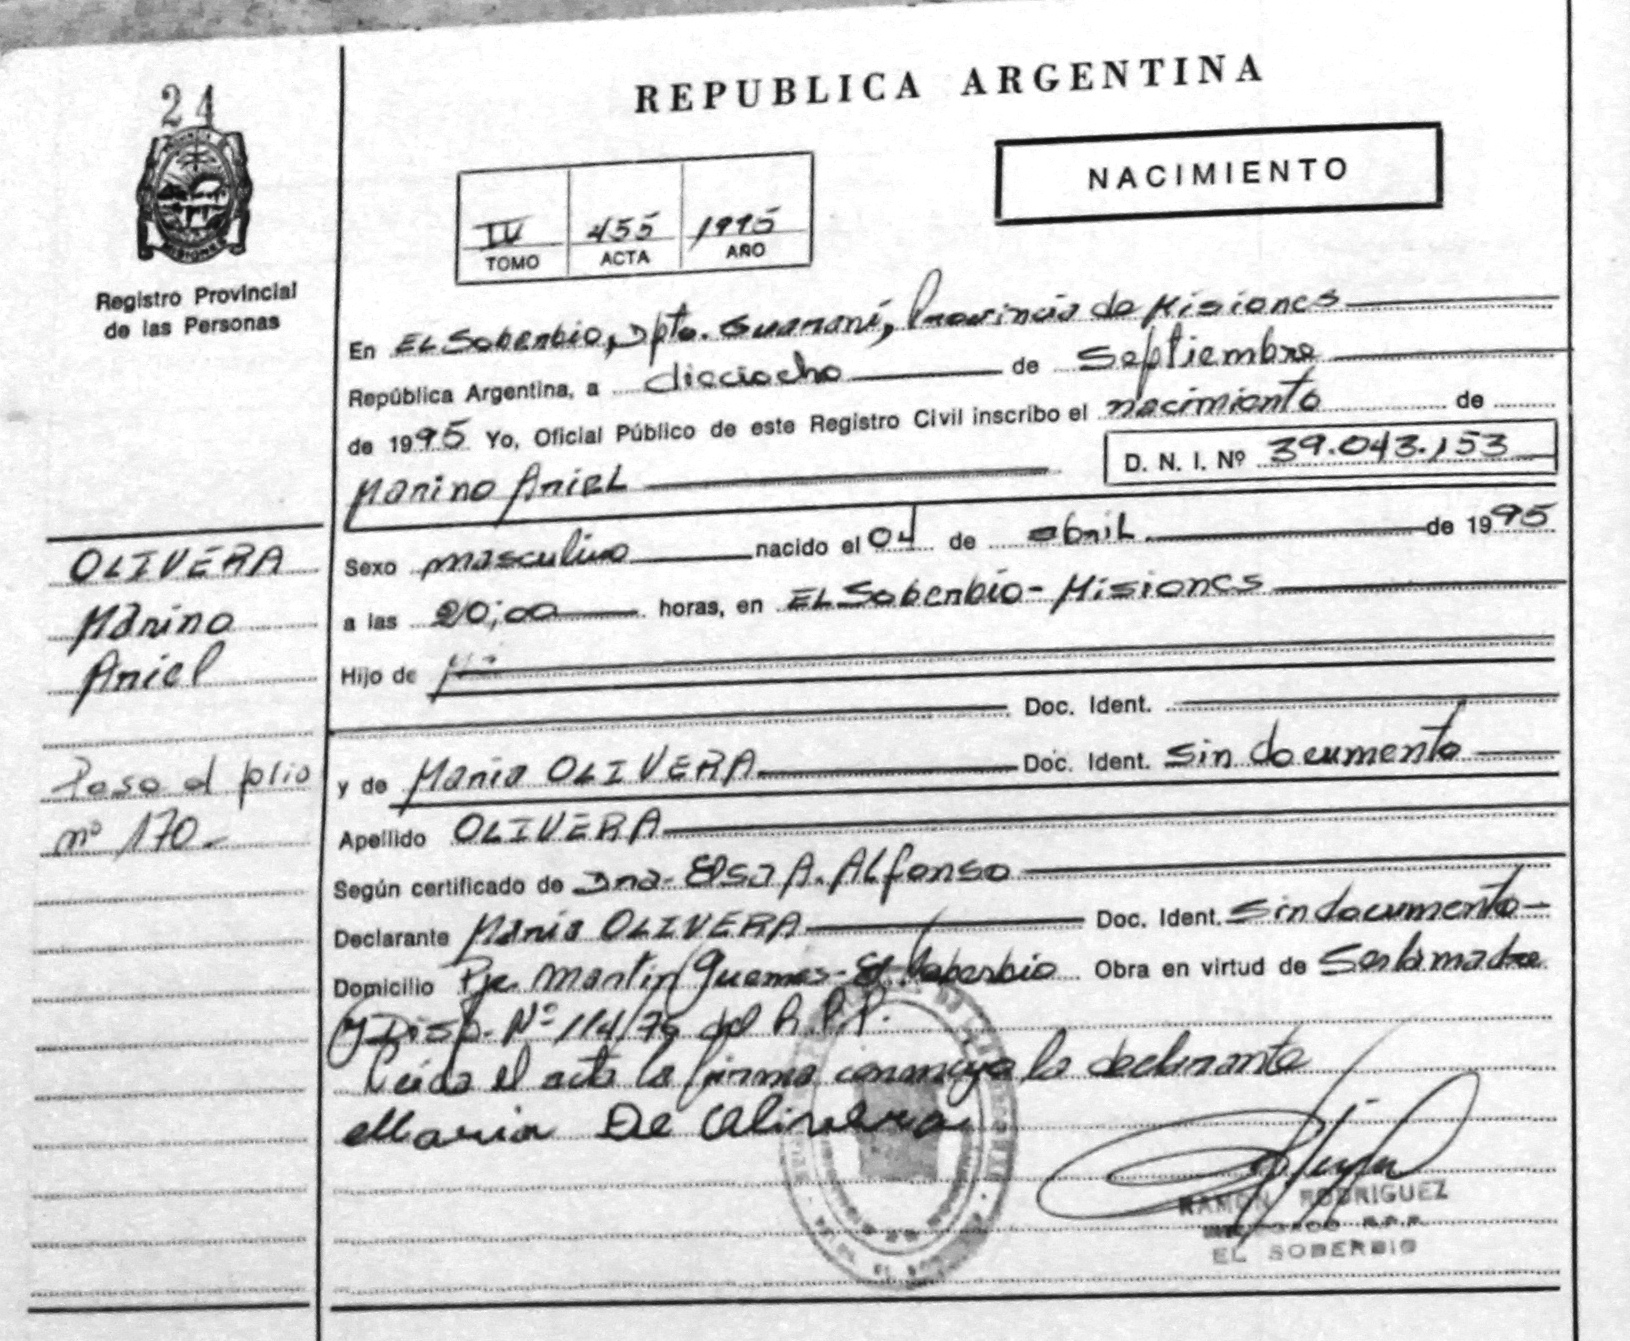 24
REPUBLICA ARGENTINA
NACIMIENTO
IV 455 1995
TOMO ACTA AÑO
Registro Provincial
de las Personas
En El Soberbio, Dpto. Guaraní, Provincia de Misiones
República Argentina, a dieciocho de Septiembre
de 1995 Yo, Oficial Público de este Registro Civil inscribo el nacimiento de
D. N. I. Nº 39.043.153
Marino Ariel
OLIVERA
Marino
Ariel
Sexo masculino nacido el 04 de abril de 1995
a las 20;00 horas, en El Soberbio - Misiones
Hijo de
Doc. Ident.
y de Maria OLIVERA Doc. Ident. Sin documento
Paso al folio
nº 170.-
Apellido OLIVERA
Según certificado de Dra. Elsa A. Alfonso
Declarante Maria OLIVERA Doc. Ident. Sin documento-
Domicilio Pje Martin Guemes - El Soberbio Obra en virtud de Ser la madre
y Disp. Nº 114/79 del R.P.P.
Leída el acta la firma conmigo la declarante
Maria De Olivera
RAMON RODRIGUEZ
R.P.P.
EL SOBERBIO